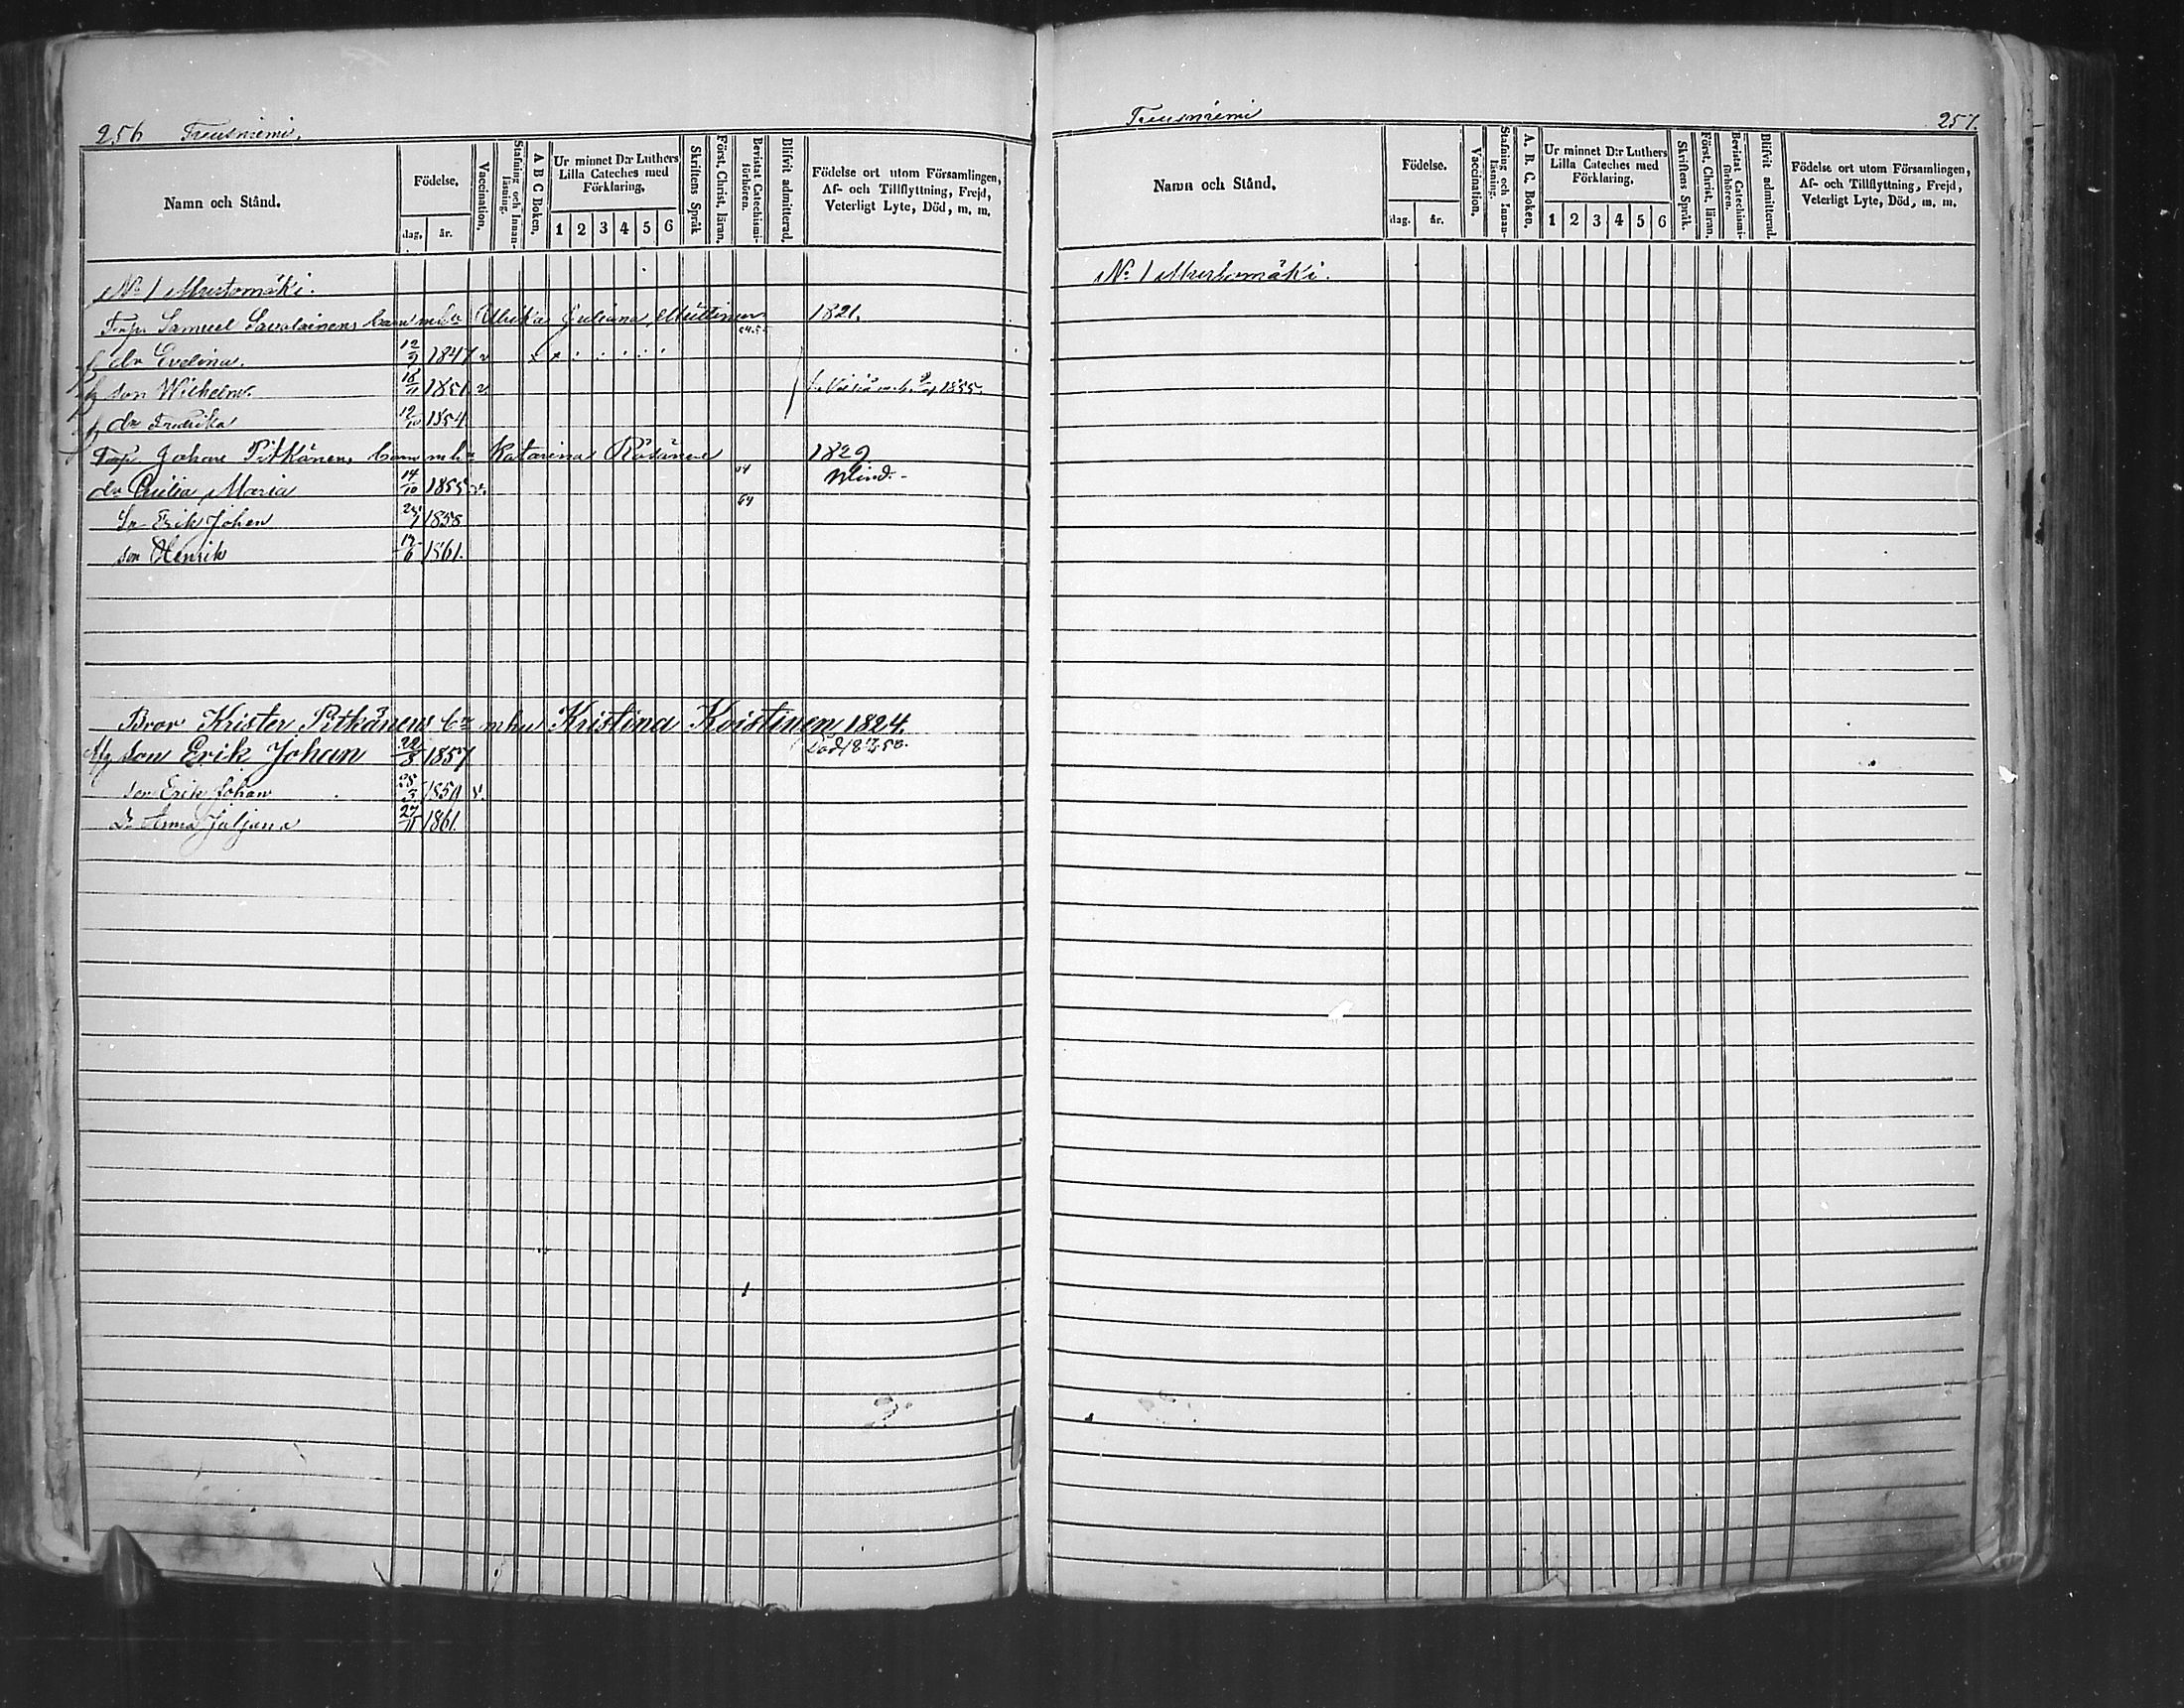 256 Tuusniemi.
Namn och Stånd.
Födelse.
dag. år.
Vaccination.
Stafning och Innanläsning.
A B C Boken.
Ur minnet D:r Luthers Lilla Cateches med Förklaring.
1 2 3 4 5 6
Skriftens Språk
Först. Christ. läran.
Bevistat Catechismiförhören.
Blifvit admitterad.
Födelse ort utom Församlingen, Af- och Tillflyttning, Frejd, Veterligt Lyte, Död, m. m.
No 1 Murtomäki.
Torp. Samuel Savolainens barn mhu Ulrika Juliana Miettinen 1821.
dr Evelina. 12/9 1847 v
son Wilhelm. 18/11 1851 v 1855.
dr Fredrika 12/10 1854
Torp. Johan Pitkänens barn mhu Katarina Räsänen 1829
dr Cecilia Maria 14/10 1855 v. 64 blind.
Sn Erik Johan 1858 64
son Henrik 1861.
Bror Krister Pitkänens bn mhu Kristina Koistinen 1824.
son Erik Johan 22/8 1857 död
son Erik Johan 1859 v.
Dr Anna Juljana 27/11 1861.
Tuusniemi 257.
Namn och Stånd.
Födelse.
dag. år.
Vaccination.
Stafning och Innanläsning.
A. B. C. Boken.
Ur minnet D:r Luthers Lilla Cateches med Förklaring.
1 2 3 4 5 6
Skriftens Språk.
Först. Christ. läran.
Bevistat Catechismiförhören.
Blifvit admitterad.
Födelse ort utom Församlingen, Af- och Tillflyttning, Frejd, Veterligt Lyte, Död, m. m.
No 1 Murtomäki.